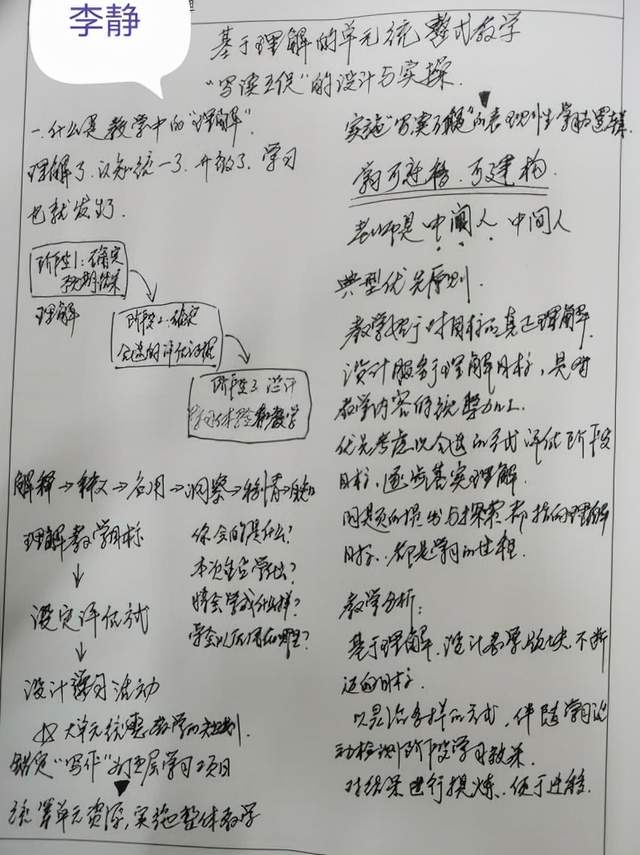 李静
基于理解的单元统整式教学
"写读互促"的设计与实操.
一.什么是教学中的"理解".
理解了.认知统一了.开放了.学习
也就发生了.
阶段1:确定
预期结果
理解
阶段2:确定
合适的评估证据
阶段3:设计
学习体验和教学
解释→释义→应用→洞察→移情→自知
理解教学目标
↓
设定评估方式
↓
设计学习活动
以大单元统整教学的规划.
锚定"写作"的主层学习项目
▼
统筹单元资源,实施整体教学
你会的是什么?
本次生活学出?
将会学成什么样?
学会以后用在哪里?
实施"写 的表现性学习逻辑.
新可迁移.可建构.
老师是中间人 中间人
典型优先原则.
教学始于对目标的真正理解.
设计服务于理解目标,是对
教学内容的统整加工.
优先考虑以合适的方式评估阶段
目标,逐步落实理解.
问题的提出与探索都指向理解
目标.都是学习的过程.
教学分析:
基于理解.设计教学版块.不断
迈向目标.
以灵活多样的方式,伴随学习活
动检测阶段学习效果.
对结果进行提炼.便于进阶.